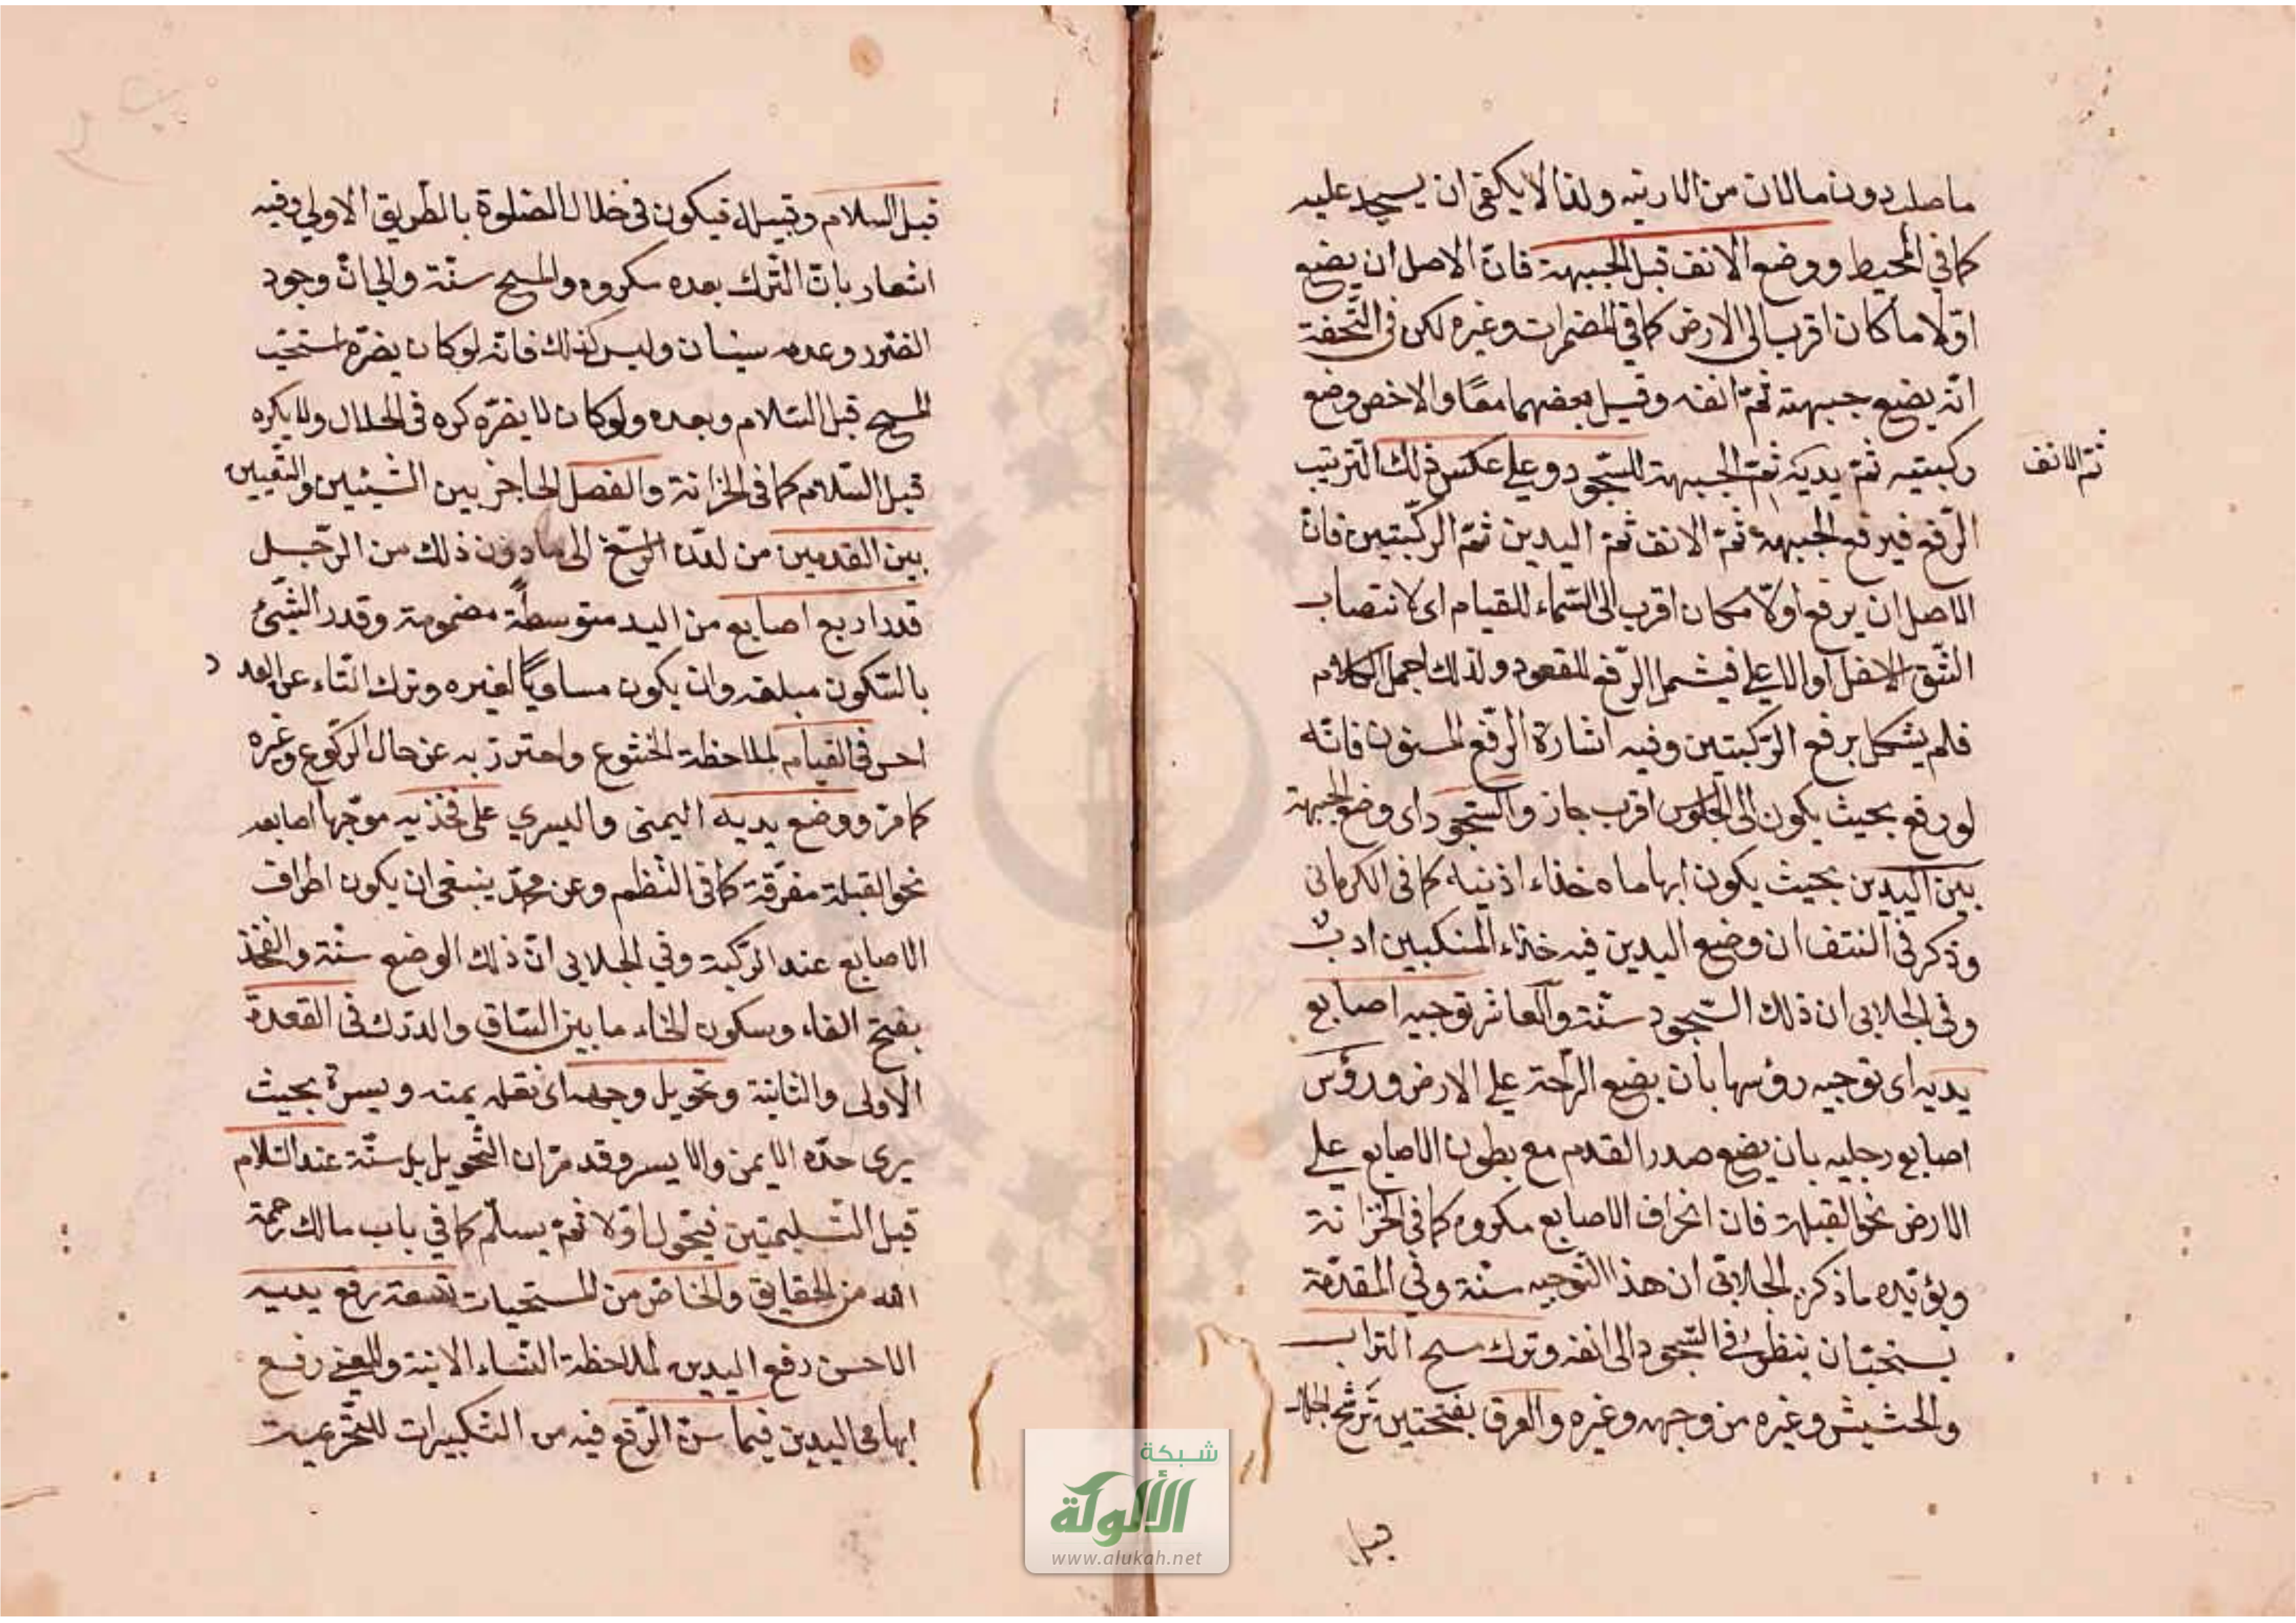 ما صلب دون ما لان من الارنبه ولذا لا يكفى ان يسجد عليه
كما في المحيط ووضع الانف قبل الجبهة فان الاصل ان يضع
اوّلا ما كان اقرب الى الارض كما في المضمرات وغيره لكن في التحفة
انّه يضع جبهته ثمّ انفه وقيل بعضهما معًا والاخص وضع
ركبتيه ثمّ يديه ثمّ الجبهة للسّجود وعلى عكس ذلك الترتيب
ثمّ الانف
الرّفع فيرفع الجبهة ثمّ الانف ثمّ اليدين ثمّ الركبتين فان
الاصل ان يرفع اولا مكان اقرب الى السّماء للقيام اى لانتصاب
الشّق الاسفل او الاعلى فيشمل الرّفع للقعود ولذلك اجمل الكلام
فلم يشكل برفع الرّكبتين وفيه اشارة الرّفع المسنون فانّه
لو رفع بحيث يكون الى الجلوس اقرب جاز والسّجود اى وضع الجبهة
بين اليدين بحيث يكون ابهاماه حذاء اذنيه كما فى الكرمانى
وذكر فى النتف ان وضع اليدين فيه حذاء المنكبين ادب
وفى الجلابى ان ذلك السّجود سنّة والعاشر توجيه اصابع
يديه اى توجيه رؤسها بان يضع الرّاحة على الارض ورؤس
اصابع رجليه بان يضع صدر القدم مع بطون الاصابع على
الارض نحو القبلة فان انحراف الاصابع مكروه كما فى الخزانة
ويؤيّده ما ذكره الجلابّى ان هذا التّوجيه سنّة وفي المقدّمة
يستحبّان ينظر في السّجود الى انفه وترك مسح التراب
والحشيش وغيره من وجهه وغيره والعرق بفتحتين ترشّح الجلد
قبل
قبل السلام وقبيله فيكون فى خلال الصلوة بالطّريق الاولى وفيه
اشعار بانّ التّرك بعده مكروه والمسح سنّة والحانّ وجود
الضّرر وعدمه سيّان وليس كذلك فانّه لو كان يضرّه استحبّ
المسح قبل السّلام وبعده ولو كان لا يضرّه كره فى الخلال ولا يكره
قبل السّلام كما فى الخزانة والفصل الحاجز بين الشّيئين والتّعيين
بين القدمين من لدن الرّسغ الى ما دون ذلك من الرّجل
قدر اربع اصابع من اليد متوسطة مضمومة وقدر الشّئ
بالسّكون مبلغه وان يكون مساويًا لغيره وترك التّاء عن العدد
احسن فى القيام لملاحظة الخشوع واحترز به عن حال الرّكوع وغيره
كما مرّ ووضع يديه اليمنى واليسرى على فخذيه موجّها اصابعه
نحو القبلة مفرّقة كما فى النّظم وعن محمّد ينبغى ان يكون اطراف
الاصابع عند الرّكبة وفي الجلابى انّ ذلك الوضع سنّة والفخذ
بفتح الفاء وسكون الخاء ما بين السّاق والورك فى القعدة
الاولى والثانية وتحويل وجهه اى نقله يمنه ويسرة بحيث
يرى خدّه الايمن والايسر وقد مرّ ان التّحويل بل سنّة عند السّلام
قبل التّسليمتين فيحول اوّلا ثمّ يسلّم كما في باب مالك رحمة
الله من الحقايق والخاصّ من المستحبات تسعة رفع يديه
الاحسن رفع اليدين لملاحظة النّساء الاتية والمعنى رفع
ابهامى اليدين فيما سنّ الرّفع فيه من التكبيرات للتّحريمة
شبكة
الألوكة
www.alukah.net